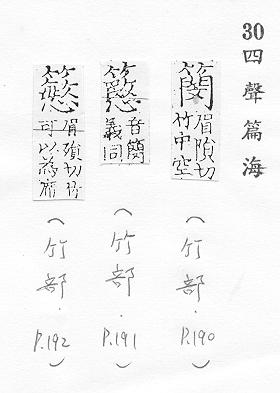 30 四聲篇海
簢 眉殞切
竹中空
(竹部.P.190)
音簢
義同
(竹部.P.191)
眉殞切竹
可以為席
(竹部.P.192)